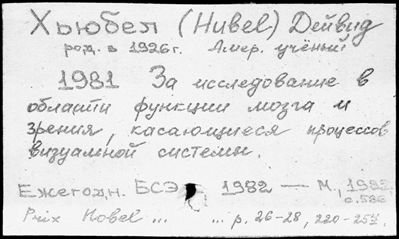 Хьюбел (Hubel) Дейвид
род. в 1926 г. Амер. учёный
1981 За исследование в
области функции мозга и
зрения, касающиеся процессов
визуальной системы.
Ежегодн. БСЭ 1982 — М., 1982
с. 586
Prix Nobel ... ... p. 26-28, 220-254.